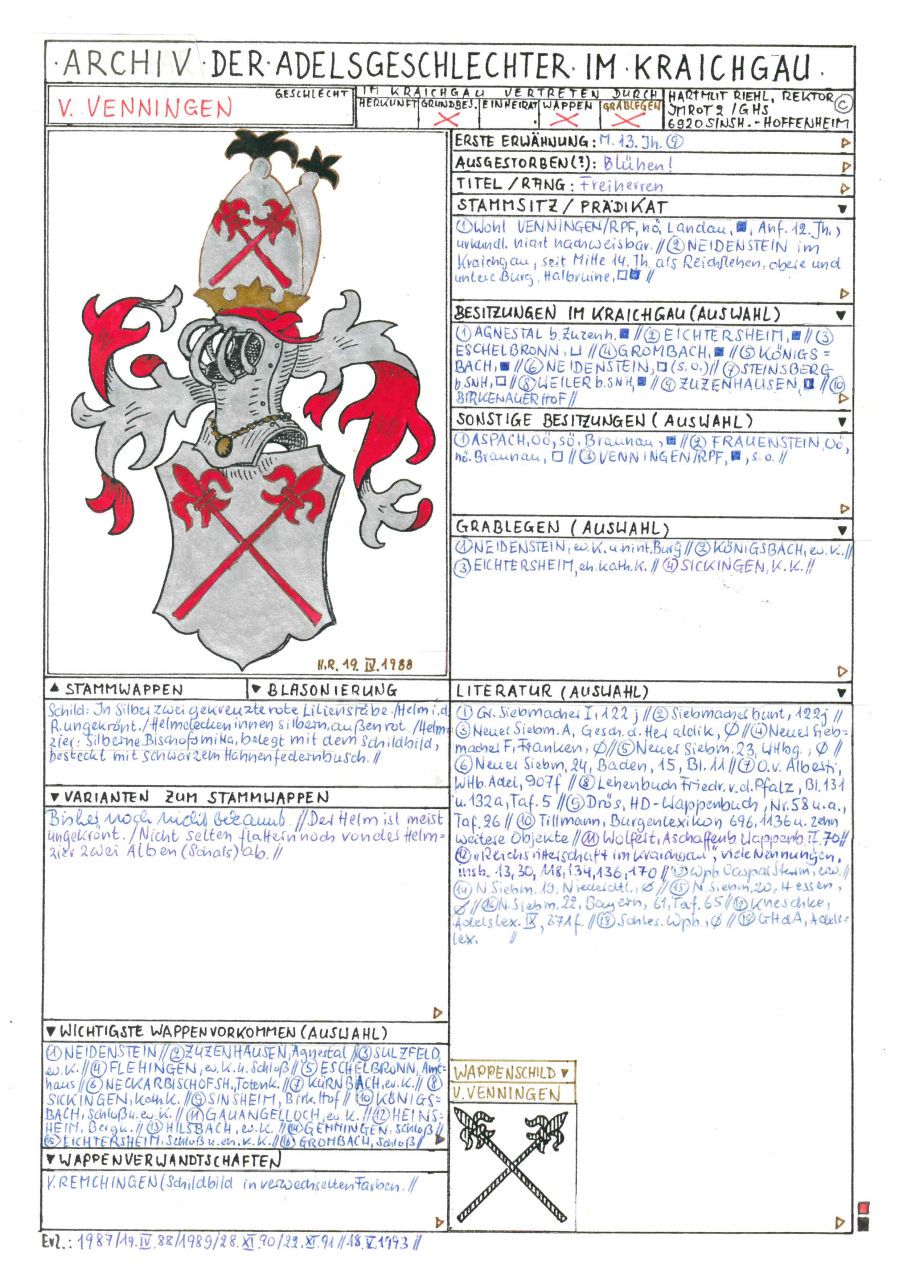 ·ARCHIV·DER·ADELSGESCHLECHTER·IM·KRAICHGAU·
GESCHLECHT
V. VENNINGEN
IM KRAICHGAU VERTRETEN DURCH
HERKUNFT GRUNDBES. EINHEIRAT WAPPEN GRABLEGEN
HARTMUT RIEHL, REKTOR ©
JMROT 2 / GHS
6920 SINSH.-HOFFENHEIM
H.R. 19. IV. 1988
▲ STAMMWAPPEN ▼ BLASONIERUNG
Schild: In Silber zwei gekreuzte rote Lilienstäbe./Helm i.d.
R. ungekrönt./Helmdecken innen silbern, außen rot./Helm=
zier: Silberne Bischofsmitra, belegt mit dem Schildbild,
besteckt mit schwarzem Hahnenfedernbusch.//
▼ VARIANTEN ZUM STAMMWAPPEN
Bisher noch nicht bekannt.//Der Helm ist meist
ungekrönt./Nicht selten flattern noch von des Helm=
zier zwei Alben (Schals) ab.//
▼ WICHTIGSTE WAPPENVORKOMMEN (AUSWAHL)
① NEIDENSTEIN // ② ZUZENHAUSEN, Agnestal // ③ SULZFELD,
ev. K. // ④ FLEHINGEN, ev. K. u. Schloß // ⑤ ESCHELBRONN, Amt=
haus // ⑥ NECKARBISCHOFSH., Totenk. // ⑦ KÜRNBACH, ev. K. // ⑧
SICKINGEN, kath. K. // ⑨ SINSHEIM, Birk. Hof // ⑩ KÖNIGS=
BACH, Schloß u. ev. K. // ⑪ GAUANGELLOCH, ev. K. // ⑫ HEINS=
HEIM, Bergk. // ⑬ HILSBACH, ev. K. // ⑭ GEMMINGEN, Schloß //
⑮ EICHTERSHEIM, Schloß u. eh. K. K. // ⑯ GROMBACH, Schloß //
▼ WAPPENVERWANDTSCHAFTEN
V. REMCHINGEN (Schildbild in verwechselten Farben.//
ERSTE ERWÄHNUNG: M. 13. Jh. ⑨
AUSGESTORBEN(?): Blühen!
TITEL / RANG: Freiherren
STAMMSITZ / PRÄDIKAT ▼
① Wohl VENNINGEN/RPF, nö. Landau, ■, Anf. 12. Jh.,
urkundl. nicht nachweisbar.// ② NEIDENSTEIN im
Kraichgau, seit Mitte 14. Jh. als Reichslehen, obere und
untere Burg, Halbruine, □■ //
BESITZUNGEN IM KRAICHGAU (AUSWAHL) ▼
① AGNESTAL b. Zuzenh. ■ // ② EICHTERSHEIM, ■ // ③
ESCHELBRONN, ⊔ // ④ GROMBACH, ■ // ⑤ KÖNIGS=
BACH, ■ // ⑥ NEIDENSTEIN, □ (s.o.) // ⑦ STEINSBERG
b. SNH, □ // ⑧ WEILER b. SNH, ■ // ⑨ ZUZENHAUSEN, // ⑩
BIRKENAUER HOF //
SONSTIGE BESITZUNGEN (AUSWAHL) ▼
① ASPACH, OÖ, sö. Braunau, ■ // ② FRAUENSTEIN, OÖ,
nö. Braunau, □ // ③ VENNINGEN/RPF, ■, s.o. //
GRABLEGEN (AUSWAHL) ▼
① NEIDENSTEIN, ev. K. u. Burg // ② KÖNIGSBACH, ev. K. //
③ EICHTERSHEIM, eh. kath. K. // ④ SICKINGEN, K. K. //
LITERATUR (AUSWAHL) ▼
① Gr. Siebmacher I, 122 j // ② Siebmacher bunt, 122 j //
③ Neuer Siebm. A, Gesch. d. Heraldik, Ø // ④ Neuer Sieb=
macher F, Franken, Ø // ⑤ Neuer Siebm. 23, WHbg., Ø //
⑥ Neuer Siebm. 24, Baden, 15, Bl. 11 // ⑦ O.v. Alberti,
WHb. Adel, 907 f // ⑧ Lehenbuch Friedr. v. d. Pfalz, Bl. 131
u. 132a, Taf. 5 // ⑨ Drös, HD-Wappenbuch, Nr. 58 u. a.,
Taf. 26 // ⑩ Tillmann, Burgenlexikon 696, 1136 u. zehn
weitere Objekte // ⑪ Wolfert, Aschaffenb. Wappenb. II. 70 //
⑫ „Reichsritterschaft im Kraichgau", viele Nennungen,
insb. 13, 30, 118, 134, 136, 170 // ⑬ Wpb. Caspar Sturm, //
⑭ N. Siebm. 19, Niederdtl., Ø // ⑮ N. Siebm. 20, Hessen,
Ø // ⑯ N. Siebm. 22, Bayern, 61, Taf. 65 // ⑰ Kneschke,
Adelslex. IX, 371 f. // ⑱ Schles. Wpb., Ø // ⑲ GHdA, Adels=
lex. //
WAPPENSCHILD ▼
V. VENNINGEN
Erl.: 1987/19. IV. 88/1989/28. XI. 90/22. XI. 91 // 18. V. 1993 //